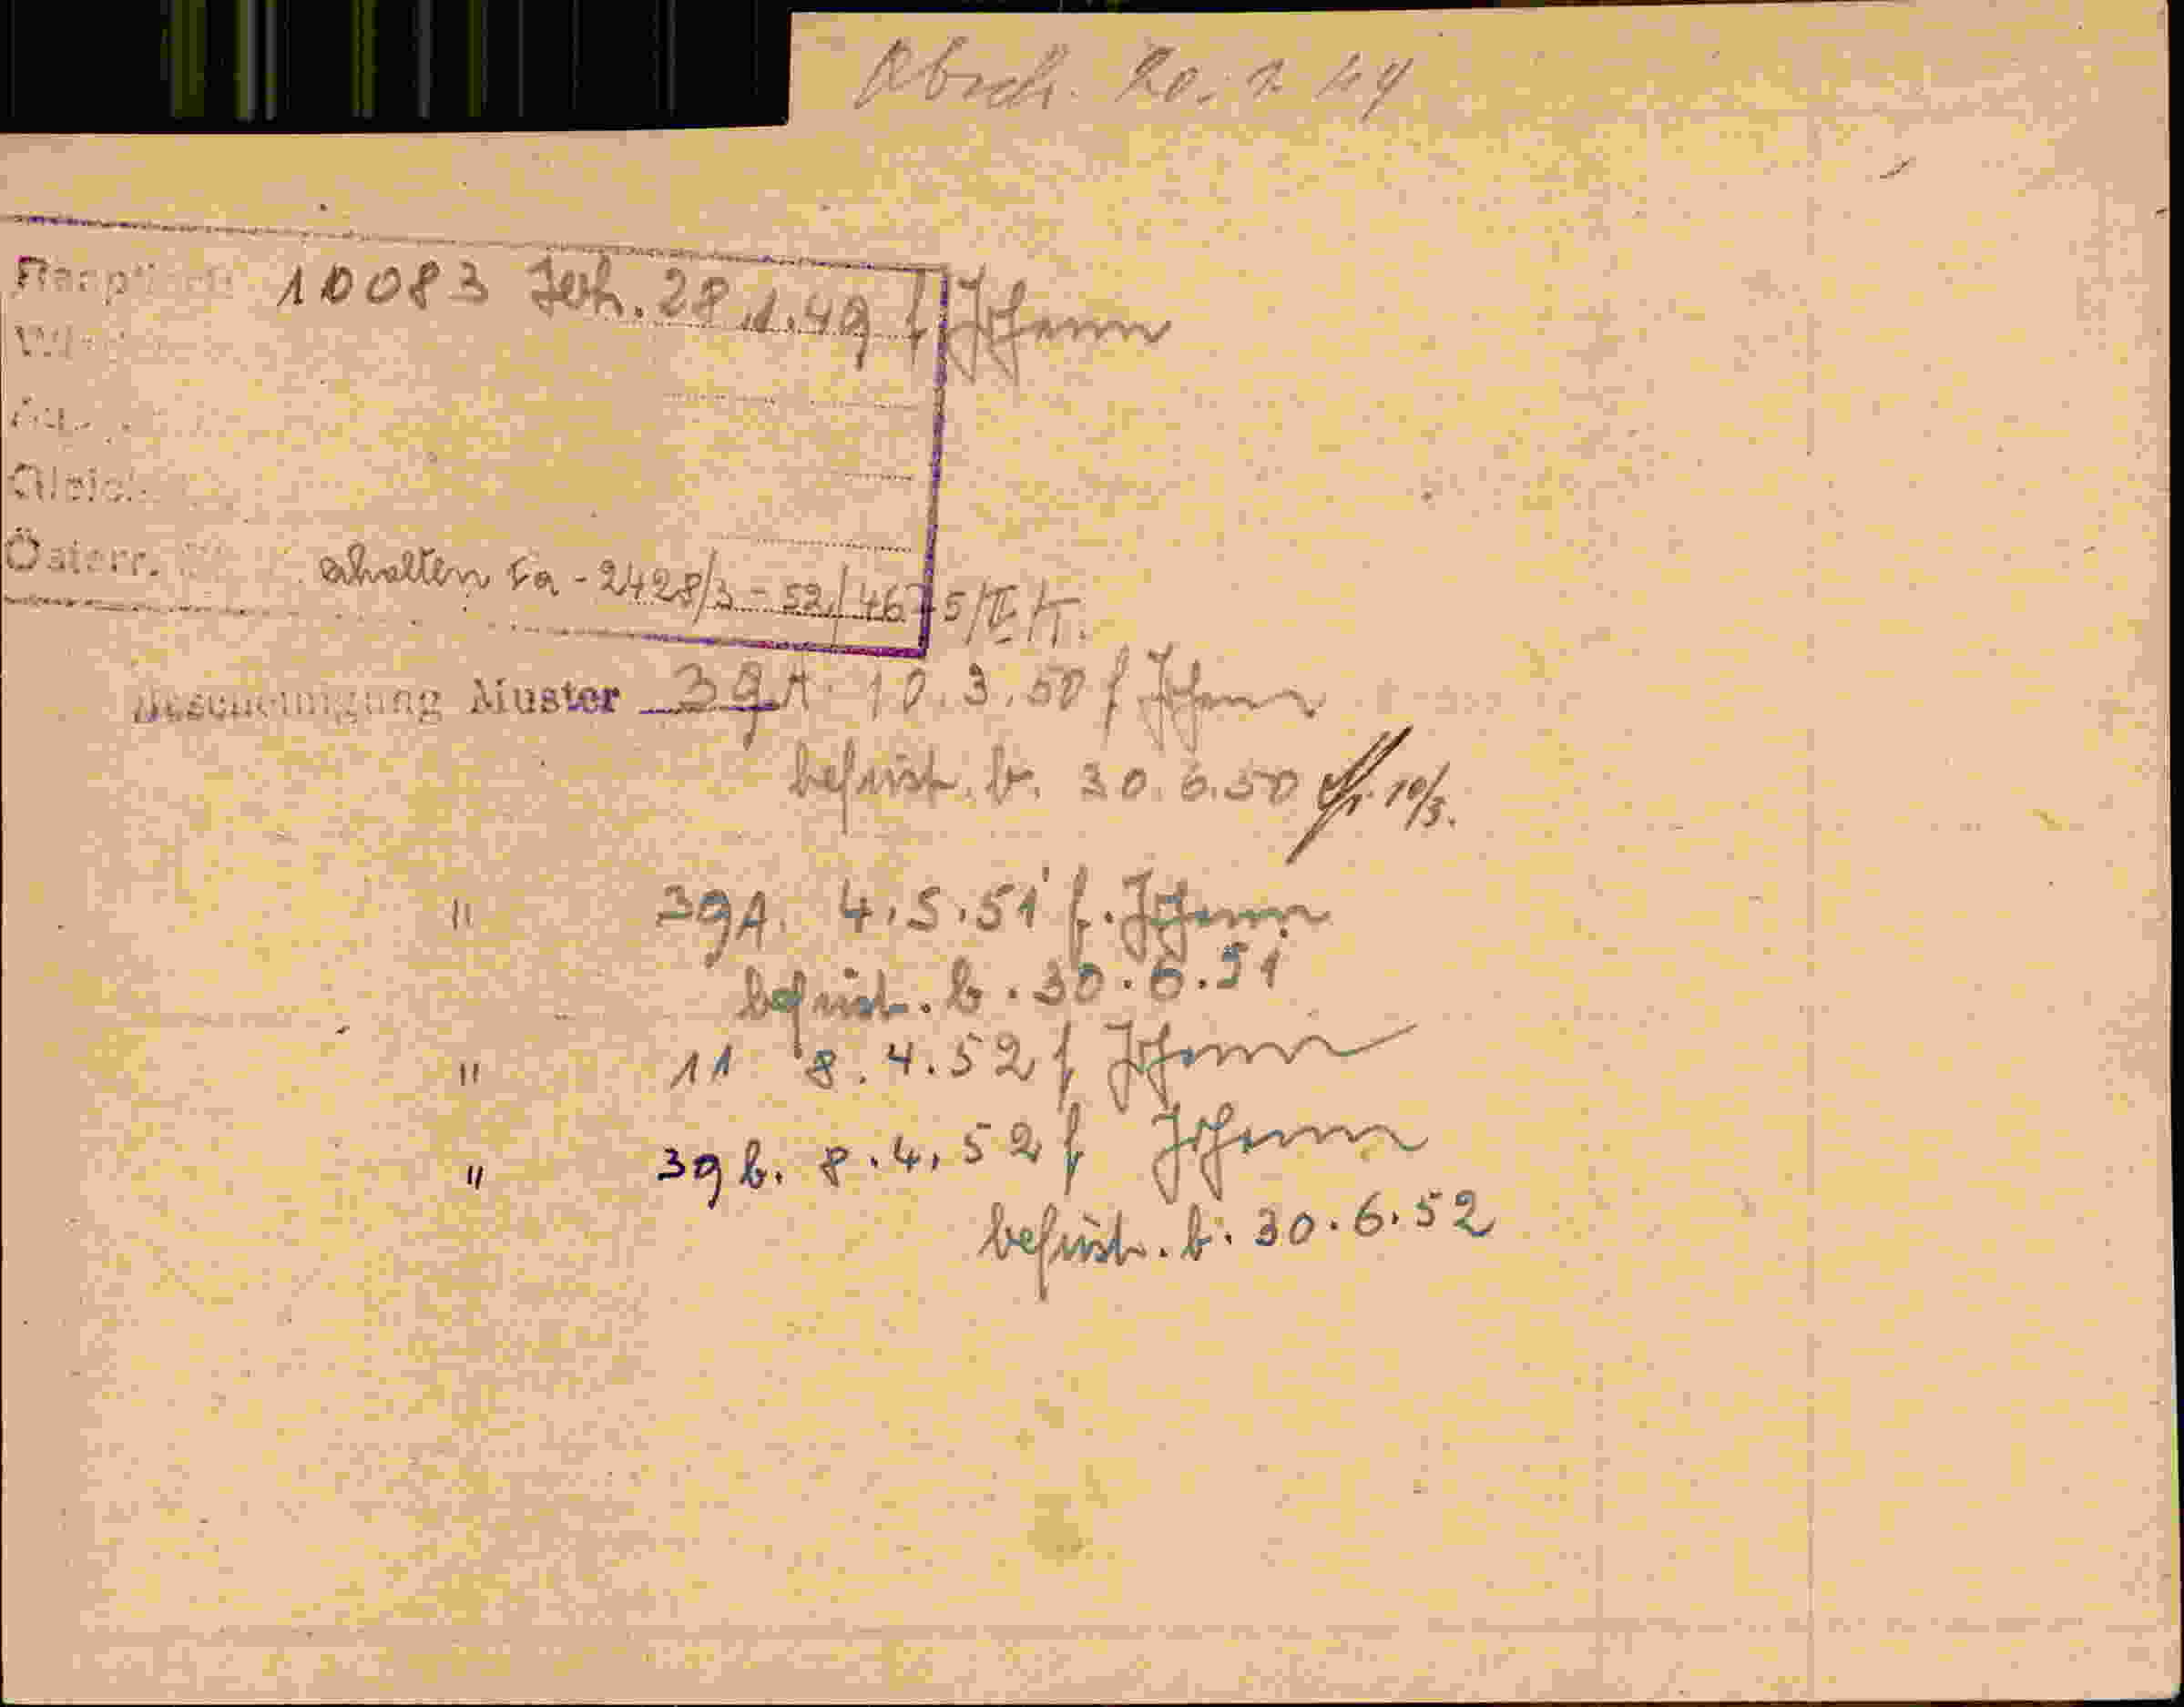 Absch. 20. 1. 49
10083 Jerh. 28.1.49 f Johann
Gleich
Österr. erhalten Fa - 2428/3 - 52/467-5/II/T.
Bescheinigung Muster 39A. 10.3.50 f Johann
befrist. b. 30.6.50 10/3.
" 39A. 4.5.51 f. Johann
befrist. b. 30.6.51
" 11 8.4.52 f Johann
" 39b. 8.4.52 f Johann
befrist. b. 30.6.52